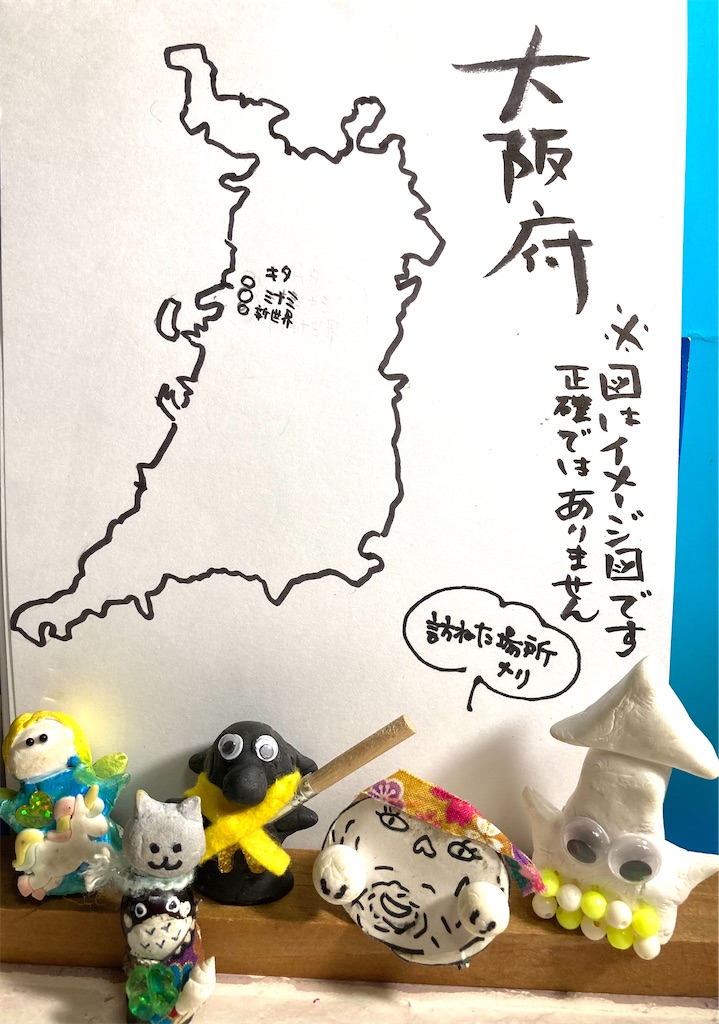 大阪府
※図はイメージ図です
正確ではありません
キタ
ミナミ
新世界
訪ねた場所
メリ